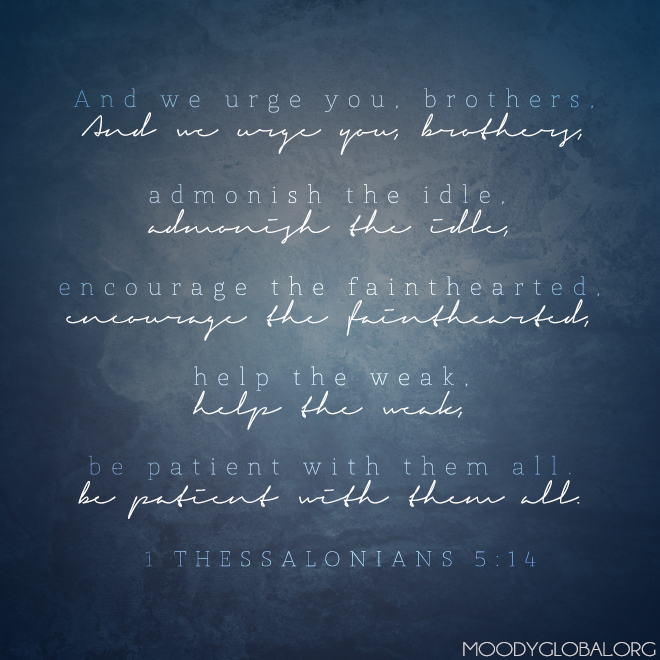 And we urge you, brothers,
And we urge you, brothers,
admonish the idle,
admonish the idle,
encourage the fainthearted,
encourage the fainthearted,
help the weak,
help the weak,
be patient with them all.
be patient with them all.
1 THESSALONIANS 5:14
MOODYGLOBAL.ORG